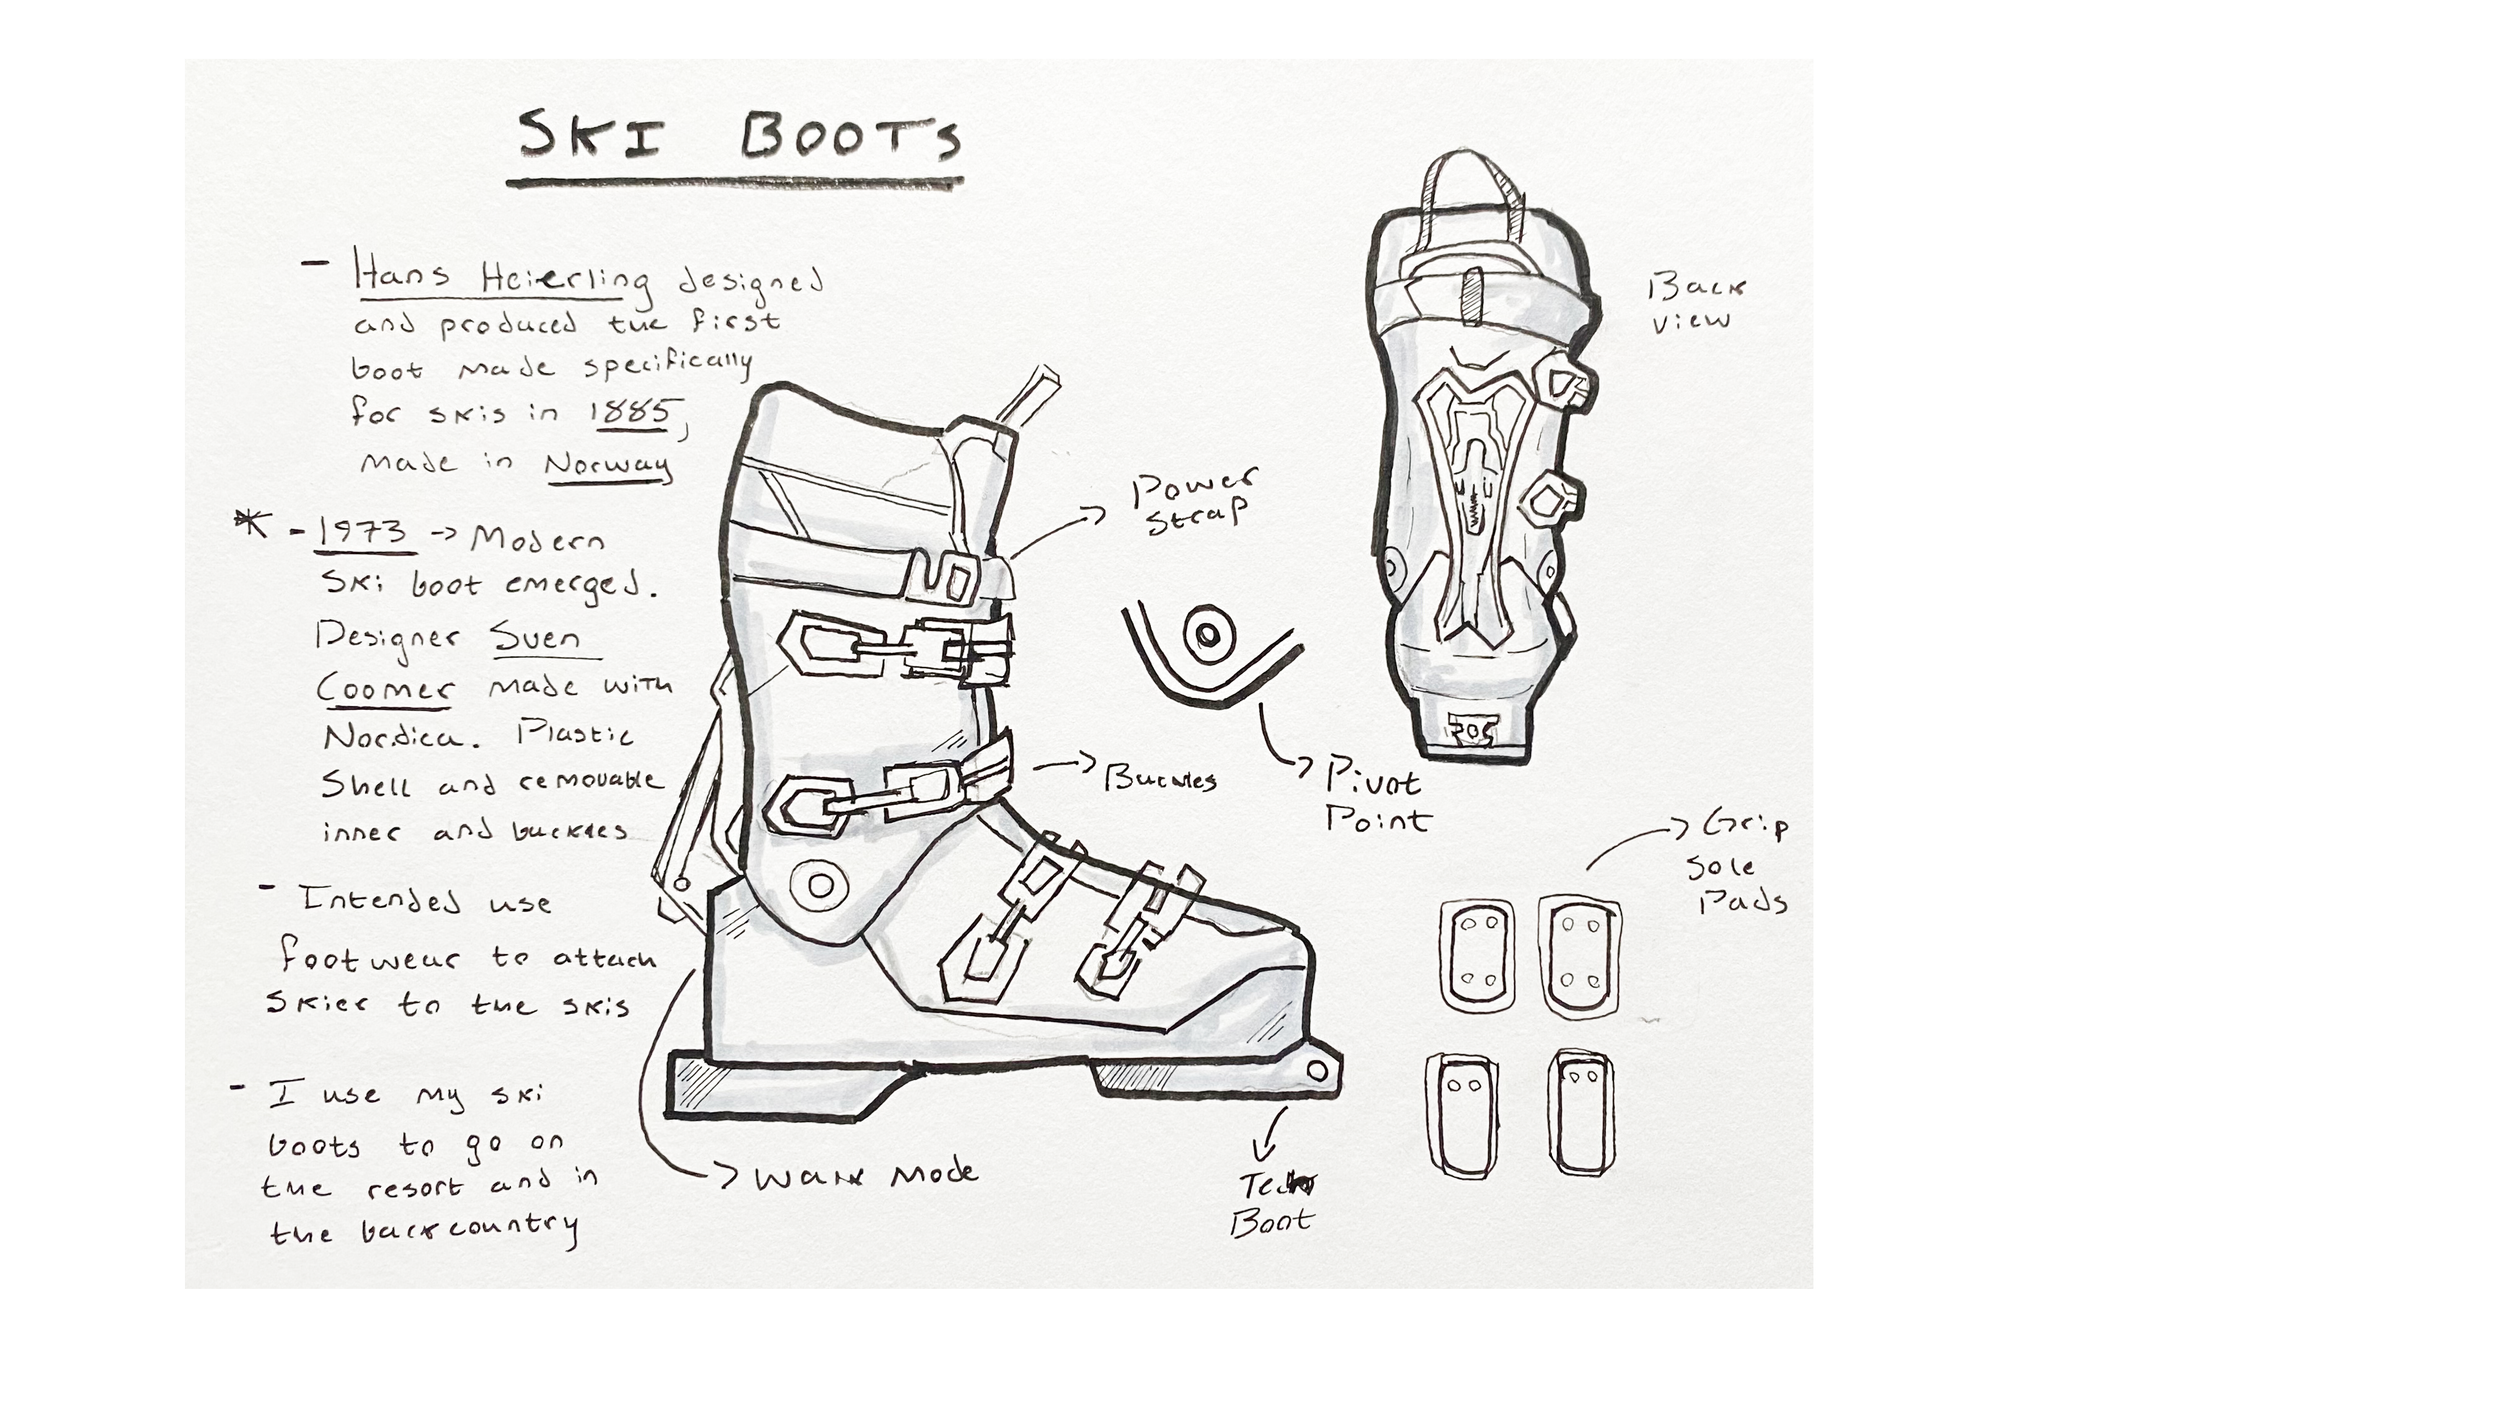 SKI BOOTS
- Hans Heierling designed
and produced the first
boot made specifically
for skis in 1885,
made in Norway
* - 1973 -> Modern
Ski boot emerged.
Designer Sven
Coomer made with
Nordica. Plastic
Shell and removable
inner and buckles
- Intended use
footwear to attach
Skier to the skis
- I use my ski
boots to go on
the resort and in
the backcountry
Power
Strap
Buckles
Pivot
Point
Walk Mode
Boot
Back
view
Grip
Sole
Pads